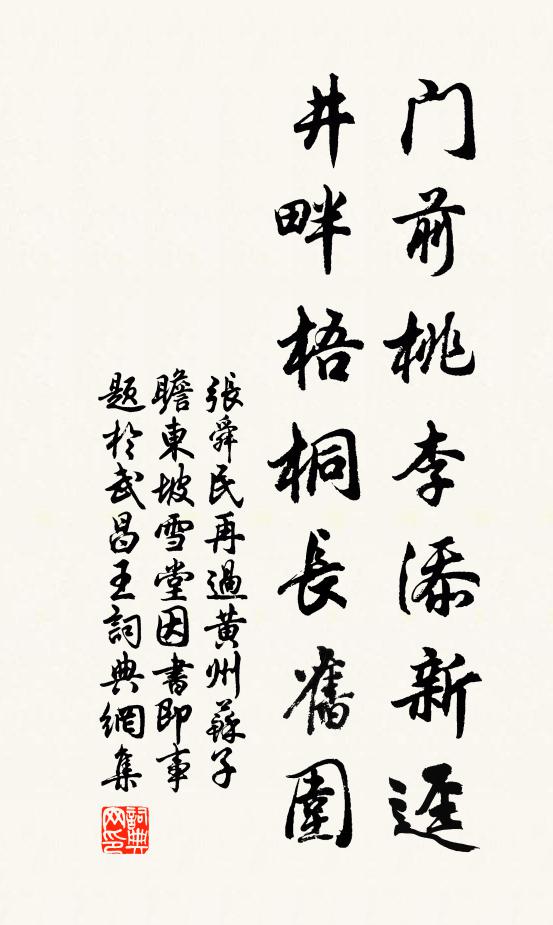 门前桃李添新逕
井畔梧桐長舊圍
張舜民再過黄州蘇子
瞻東坡雪堂因書即事
题於武昌王詞典網集
詞典网印